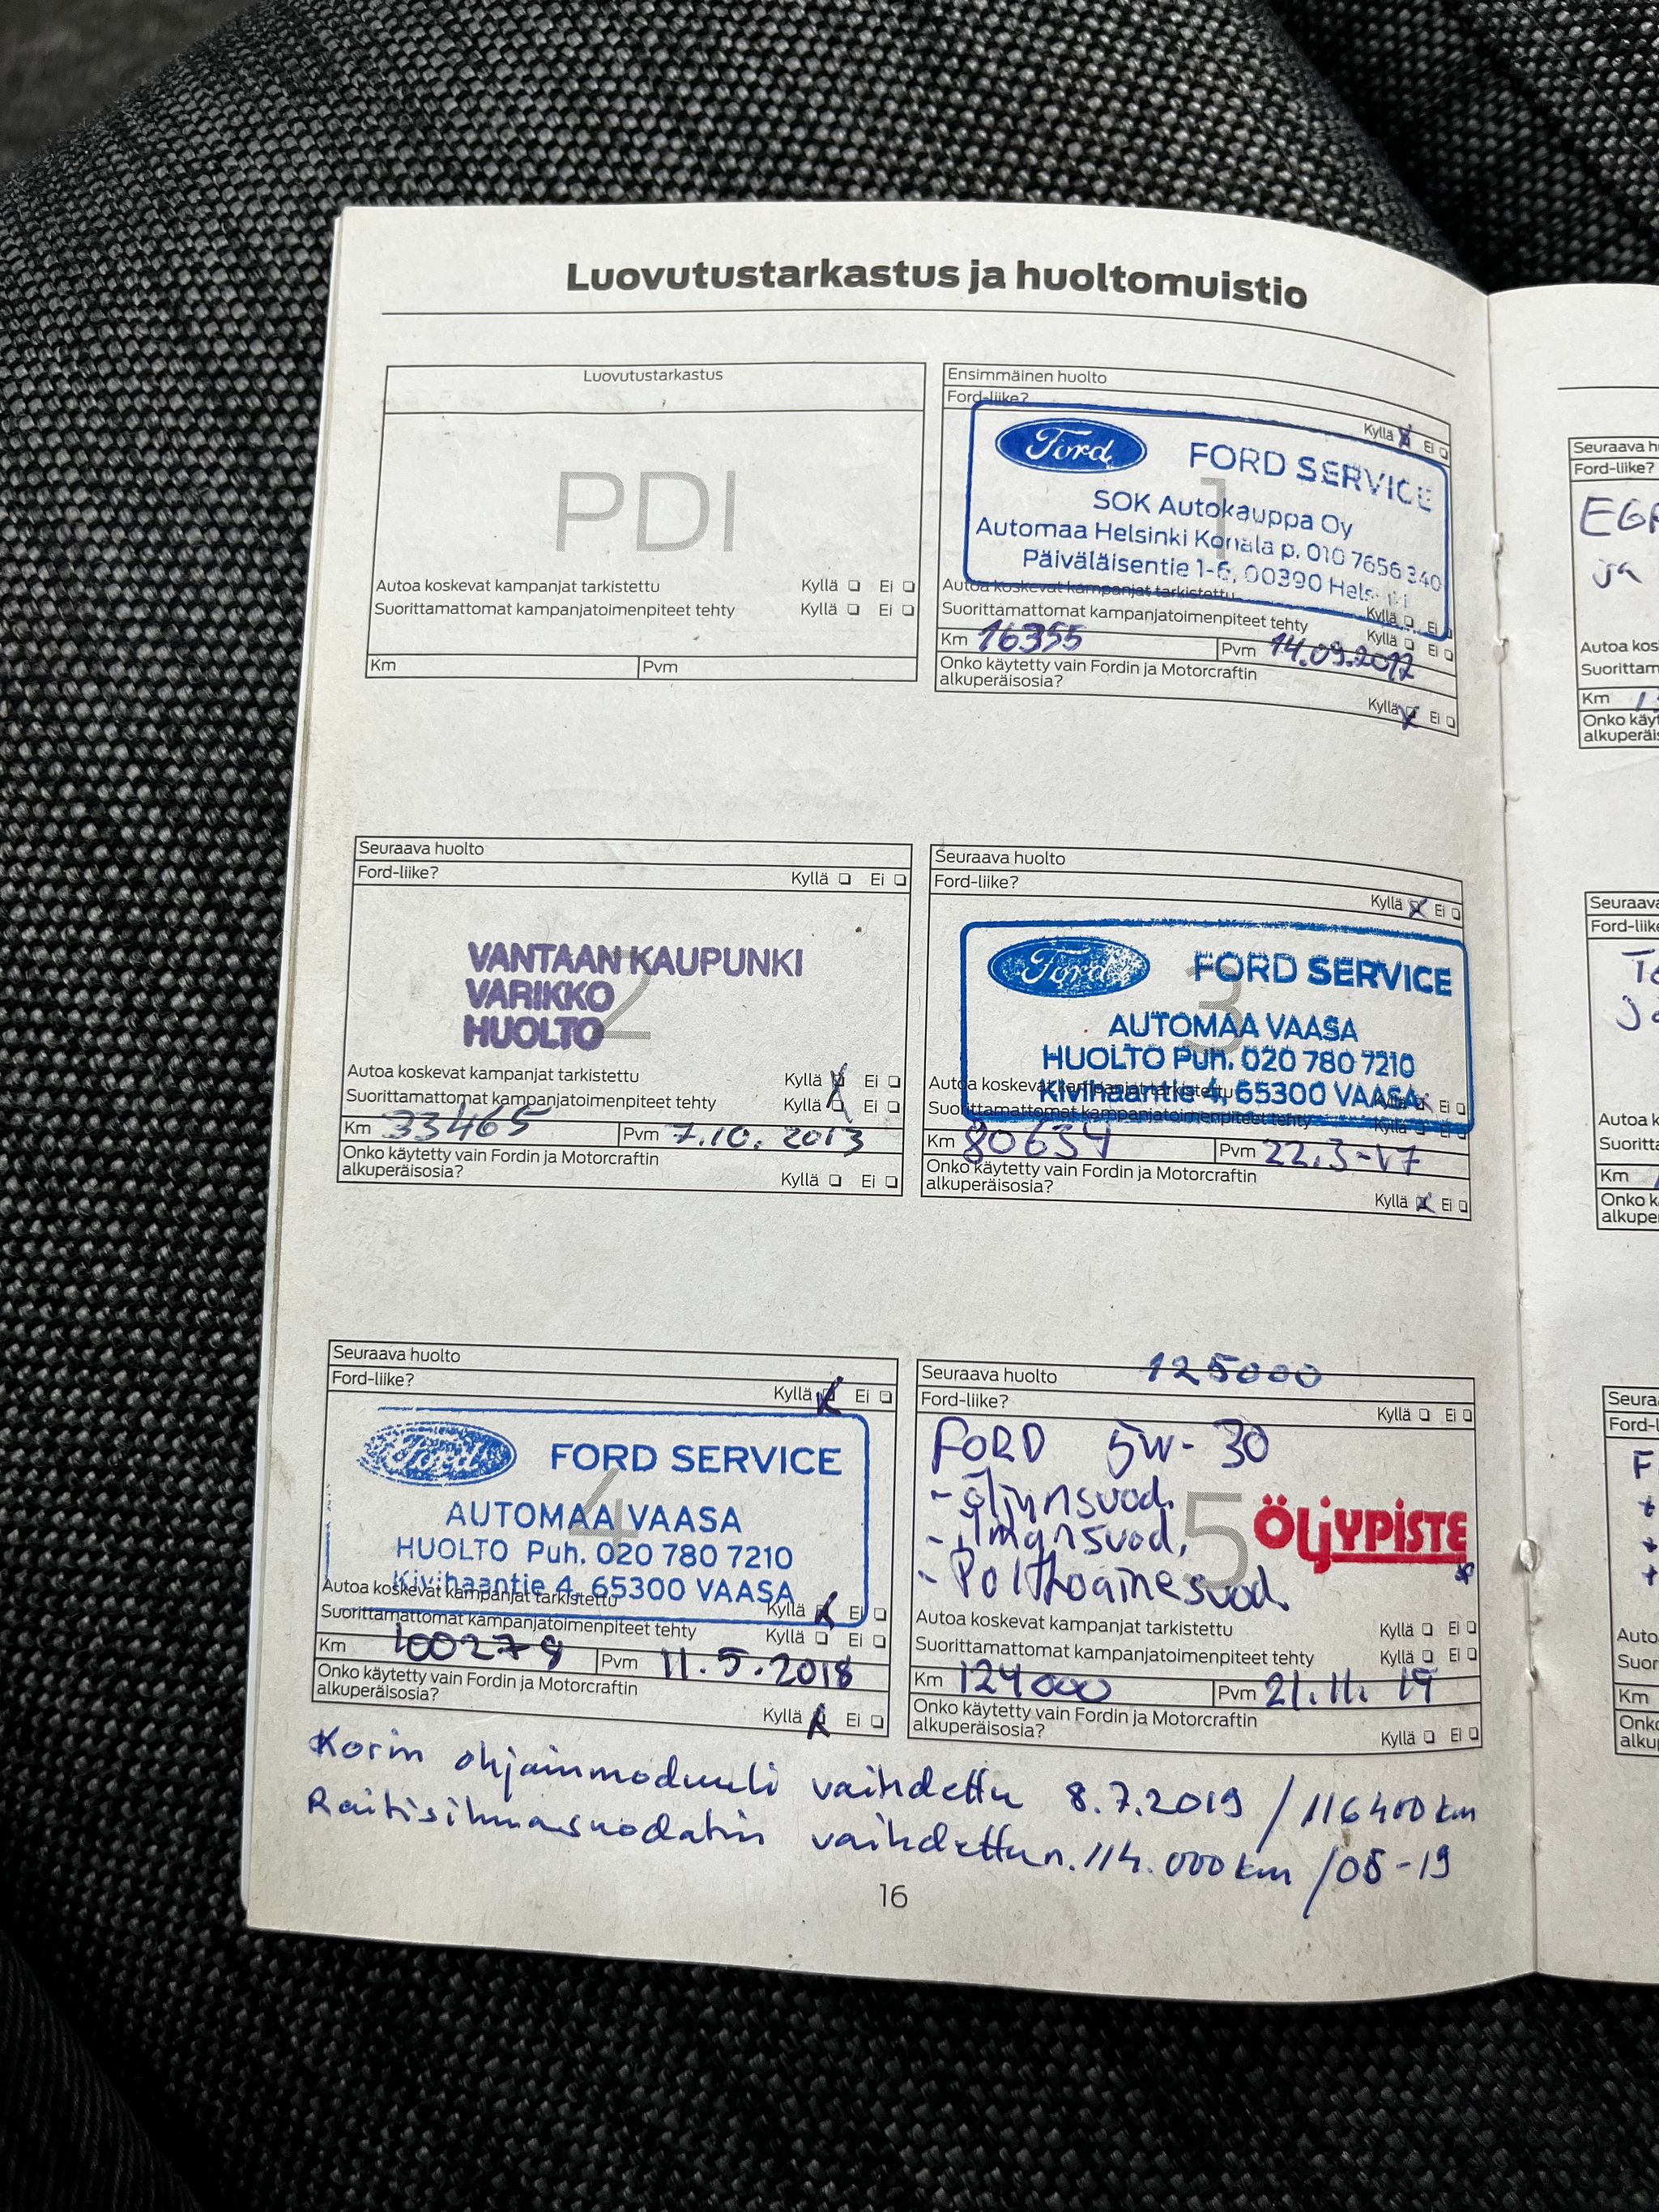 Luovutustarkastus ja huoltomuistio
Luovutustarkastus
PDI
Autoa koskevat kampanjat tarkistettu Kyllä Ei
Suorittamattomat kampanjatoimenpiteet tehty Kyllä Ei
Km Pvm
Ensimmäinen huolto
Ford-liike?
Kyllä Ei
1
Ford FORD SERVICE
SOK Autokauppa Oy
Automaa Helsinki Konala p. 010 7656 340
Päiväläisentie 1-6, 00390 Helsinki
Autoa koskevat kampanjat tarkistettu
Kyllä Ei
Suorittamattomat kampanjatoimenpiteet tehty
Kyllä Ei
Km 16355 Pvm 14.09.2012
Onko käytetty vain Fordin ja Motorcraftin
alkuperäisosia?
Kyllä Ei
Seuraava huolto
Ford-liike? Kyllä Ei
2
VANTAAN KAUPUNKI
VARIKKO
HUOLTO
Autoa koskevat kampanjat tarkistettu Kyllä Ei
Suorittamattomat kampanjatoimenpiteet tehty Kyllä Ei
Km 33465 Pvm 7.10.2013
Onko käytetty vain Fordin ja Motorcraftin
alkuperäisosia? Kyllä Ei
Seuraava huolto
Ford-liike?
Kyllä Ei
3
Ford FORD SERVICE
AUTOMAA VAASA
HUOLTO Puh. 020 780 7210
Kivihaantie 4, 65300 VAASA
Autoa koskevat kampanjat tarkistettu Kyllä Ei
Suorittamattomat kampanjatoimenpiteet tehty Kyllä Ei
Km 80634 Pvm 22.3-17
Onko käytetty vain Fordin ja Motorcraftin
alkuperäisosia?
Kyllä Ei
Seuraava huolto
Ford-liike?
Kyllä Ei
4
Ford FORD SERVICE
AUTOMAA VAASA
HUOLTO Puh. 020 780 7210
Kivihaantie 4, 65300 VAASA
Autoa koskevat kampanjat tarkistettu
Kyllä Ei
Suorittamattomat kampanjatoimenpiteet tehty Kyllä Ei
Km 100279 Pvm 11.5.2018
Onko käytetty vain Fordin ja Motorcraftin
alkuperäisosia?
Kyllä Ei
Seuraava huolto 125000
Ford-liike?
Kyllä Ei
5
FORD 5W-30
- öljynsuod.
- ilmansuod,
- Polttoainesuod.
ÖLJYPISTE
Autoa koskevat kampanjat tarkistettu Kyllä Ei
Suorittamattomat kampanjatoimenpiteet tehty Kyllä Ei
Km 124000 Pvm 21.11.19
Onko käytetty vain Fordin ja Motorcraftin
alkuperäisosia? Kyllä Ei
Korin ohjainmoduuli vaihdettu 8.7.2019 / 116400 km
Raitisilmasuodatin vaihdettu n. 114.000 km / 05-19
16
Seuraava
Ford-liike?
ja
Autoa
Km
Onko
Ford-liike
Autoa
Km
Onko
Autoa
Km